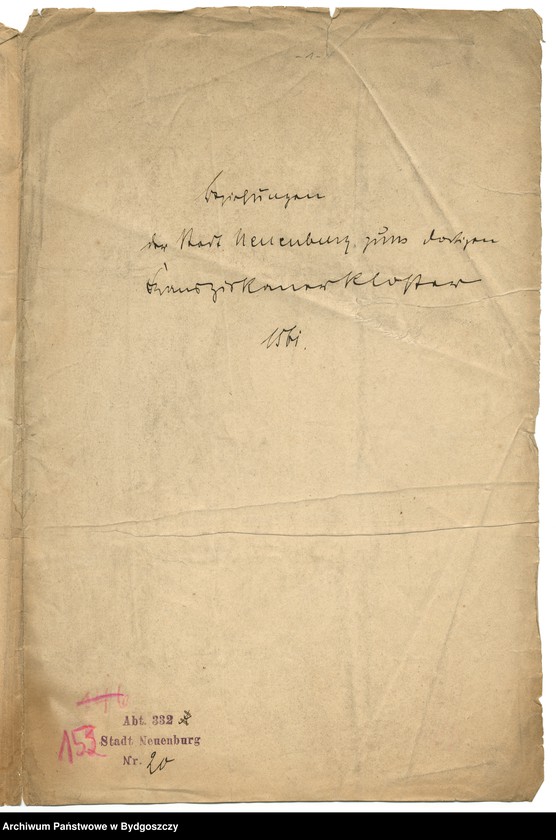 -1-
Beziehungen
der Stadt Neuenburg zum dortigen
Franziskanerkloster
1561.
Abt. 332
153 Stadt Neuenburg
Nr. 20
Archiwum Państwowe w Bydgoszczy